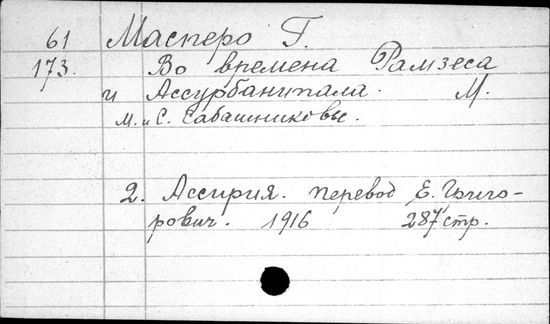 61 Масперо Г.
173. Во времена Рамзеса
и Ассурбанипала. М.
М. и С. Сабашниковы.
2. Ассирия. перевод Е. Григо-
рович. 1916 287 стр.